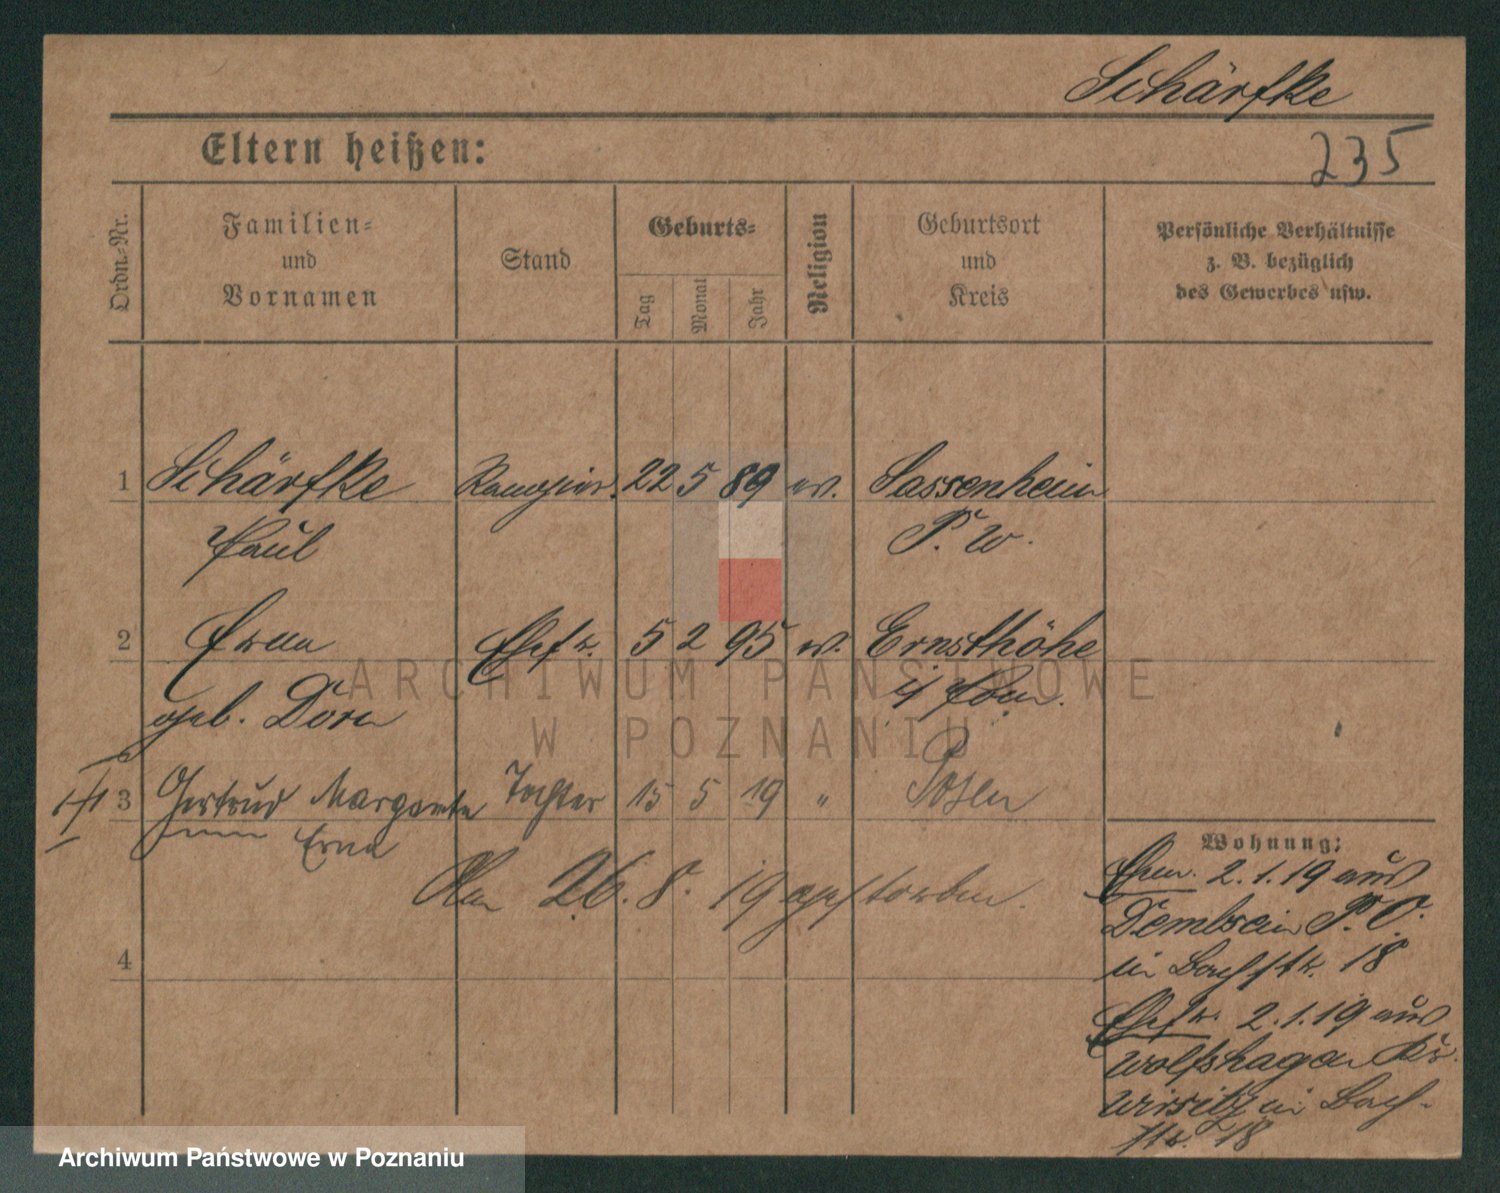 Schärfke
235
Eltern heißen:
Ordn.-Nr.
Familien-
und
Vornamen
Stand
Geburts-
Tag
Monat
Jahr
Religion
Geburtsort
und
Kreis
Persönliche Verhältnisse
z. B. bezüglich
des Gewerbes usw.
1 Schärfke 22 5 89 ev. Sassenheim
Paul P. W.
2 Erna Ehefr. 5 2 95 ev. Ernsthöhe
geb. Dorn
3 Gertrud Margarete Tochter 15 5 19 " Posen
Erna
Am 26. 8. 19 gestorben.
4
Wohnung:
Ehem. 2.1.19 aus
Dembsen P. O.
in Bachstr. 18
Ehefr. 2.1.19 aus
Wolfshagen Kr.
Wirsitz in Bach-
str. 18
ARCHIWUM PAŃSTWOWE
W POZNANIU
Archiwum Państwowe w Poznaniu